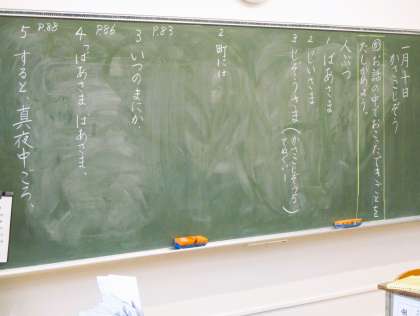 一月十日
かさこじぞう
めお話の中でおこったできごとを
たしかめよう。
人ぶつ
1 ばあさま
2 じいさま
3 じぞうさま(かさこじぞう)
てぬぐい
2 町には
P.83
3 いつのまにか
P.86
4 「ばあさま ばあさま、
P.88
5 すると、真夜中ごろ、